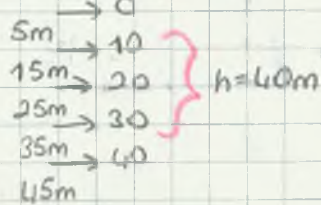 → 0
5m → 10
15m → 20
25m → 30
35m → 40
45m
h=40m